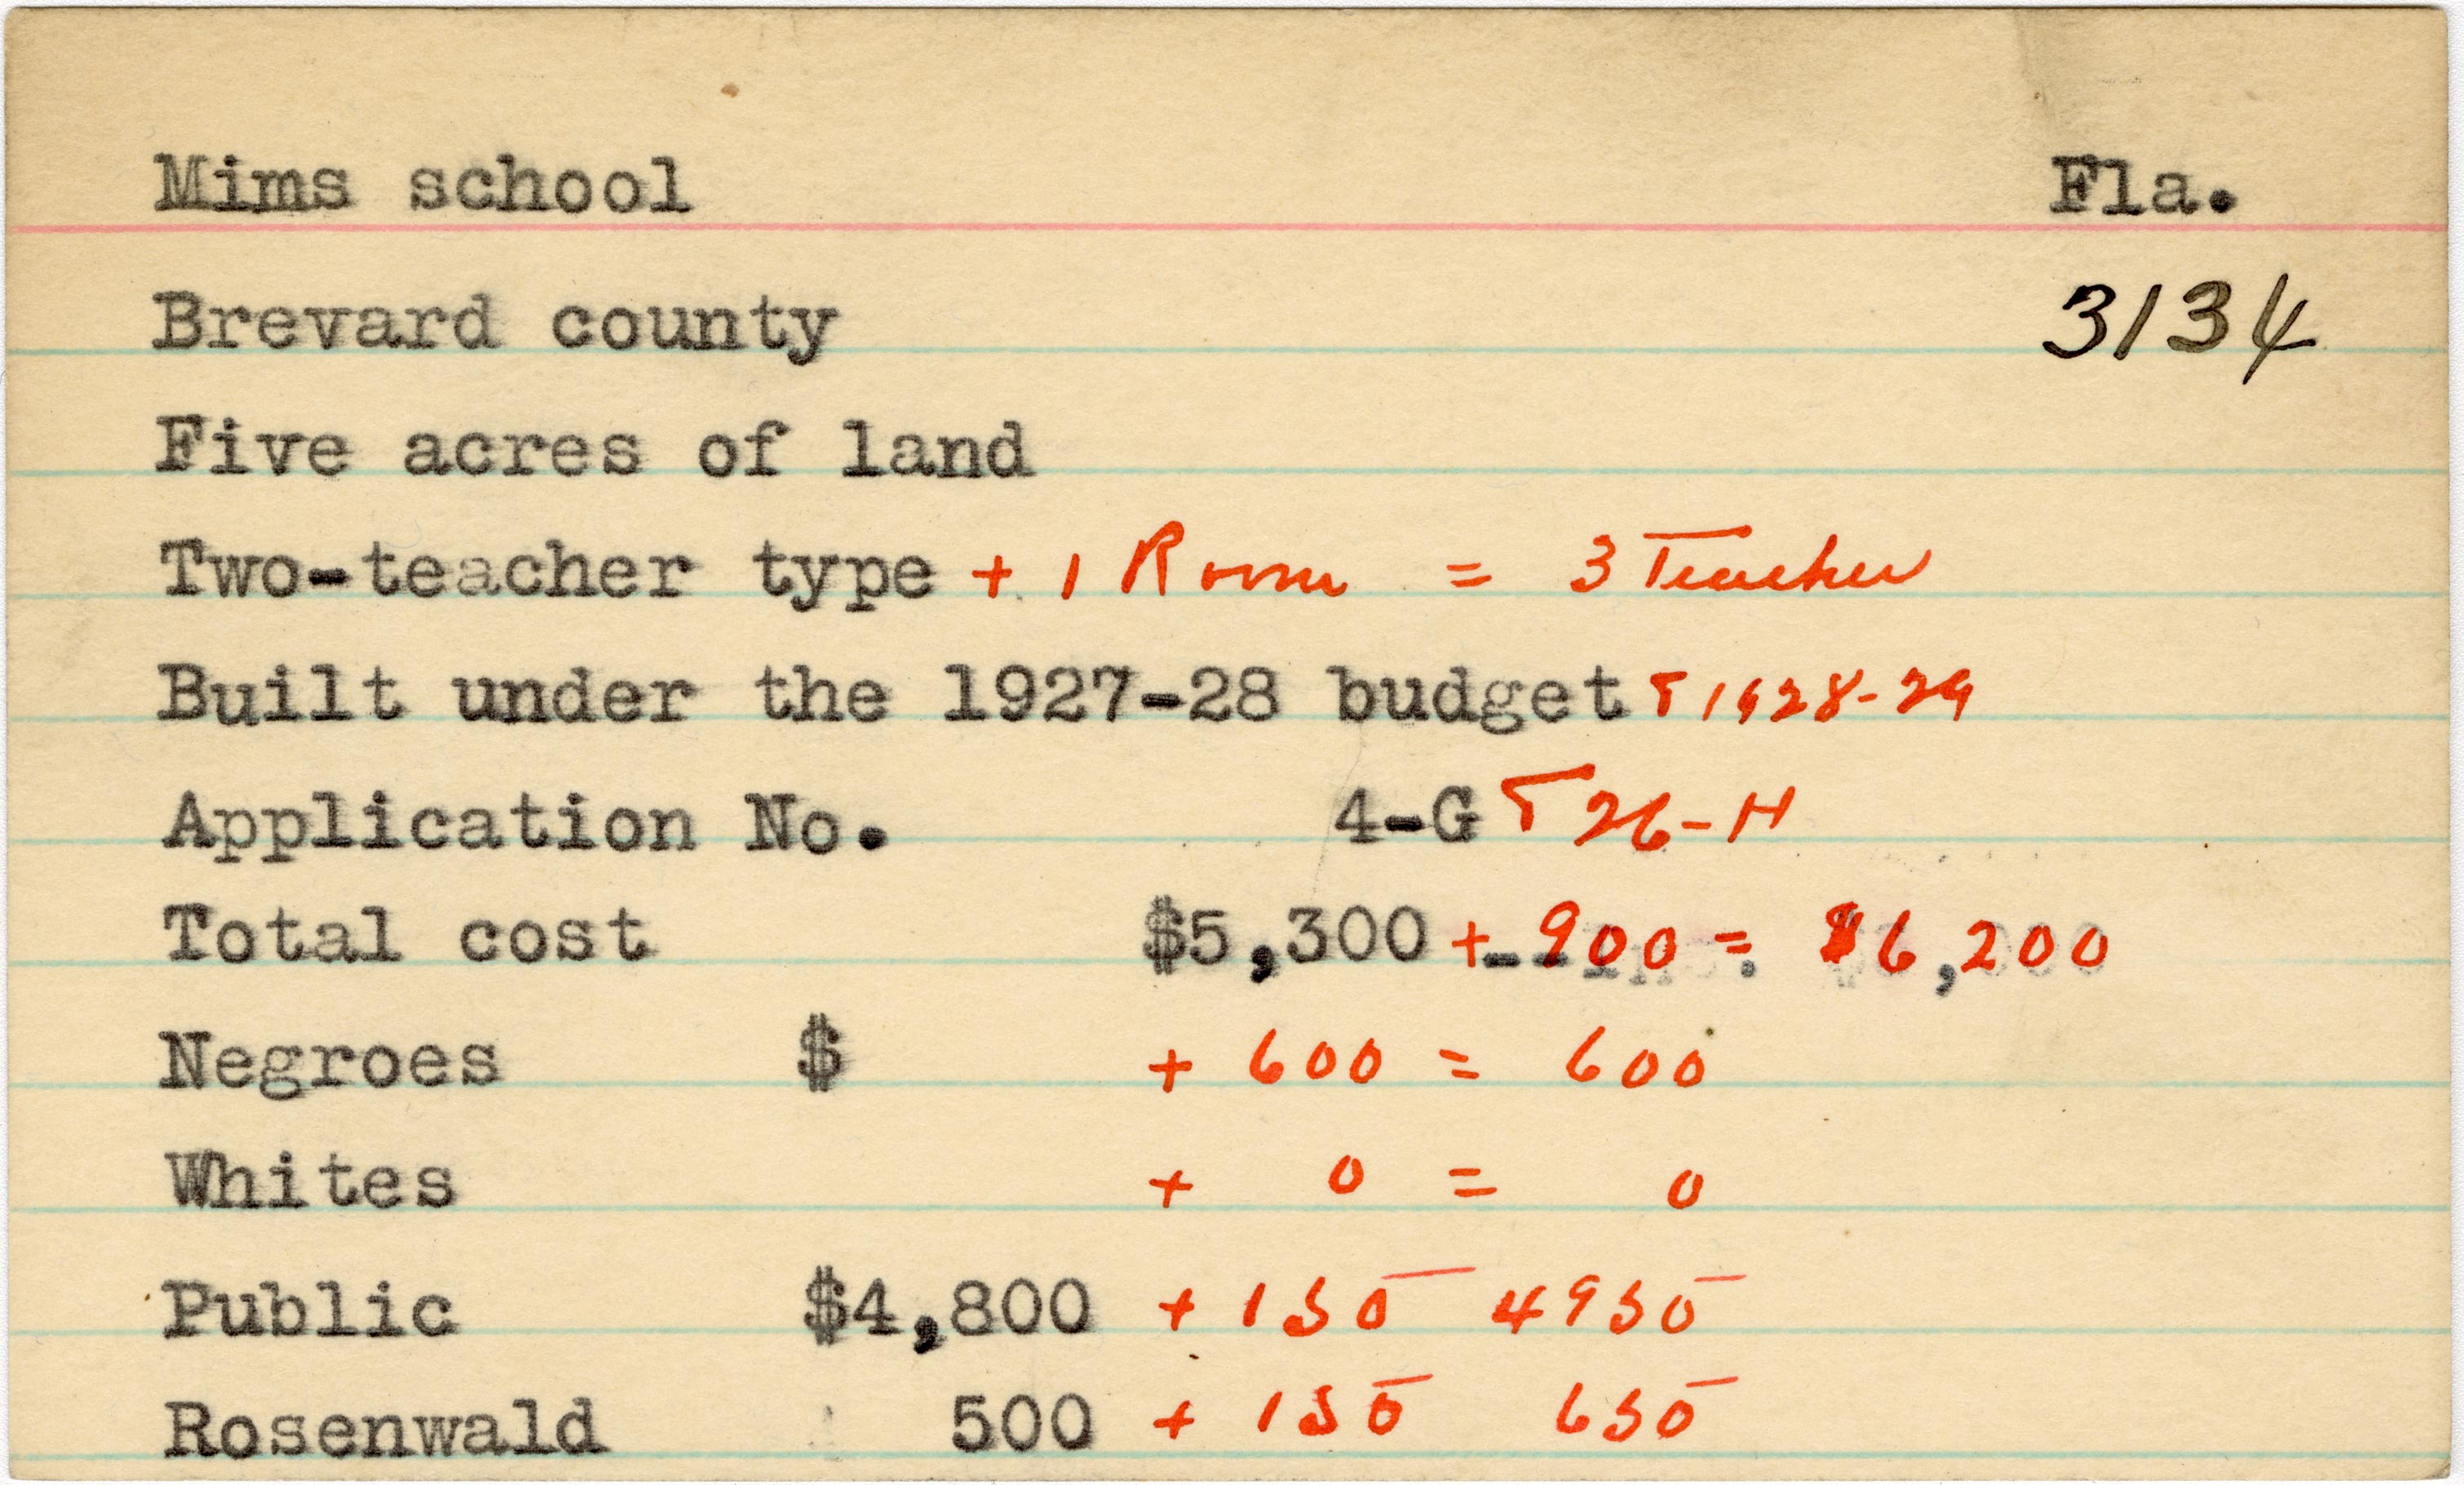 Mims school Fla.
Brevard county 3134
Five acres of land
Two-teacher type + 1 Room = 3 Teacher
Built under the 1927-28 budget & 1928-29
Application No. 4-G & 26-H
Total cost $5,300 + 900 = $6,200
Negroes $ + 600 = 600
Whites + 0 = 0
Public $4,800 + 150 4950
Rosenwald 500 + 150 650